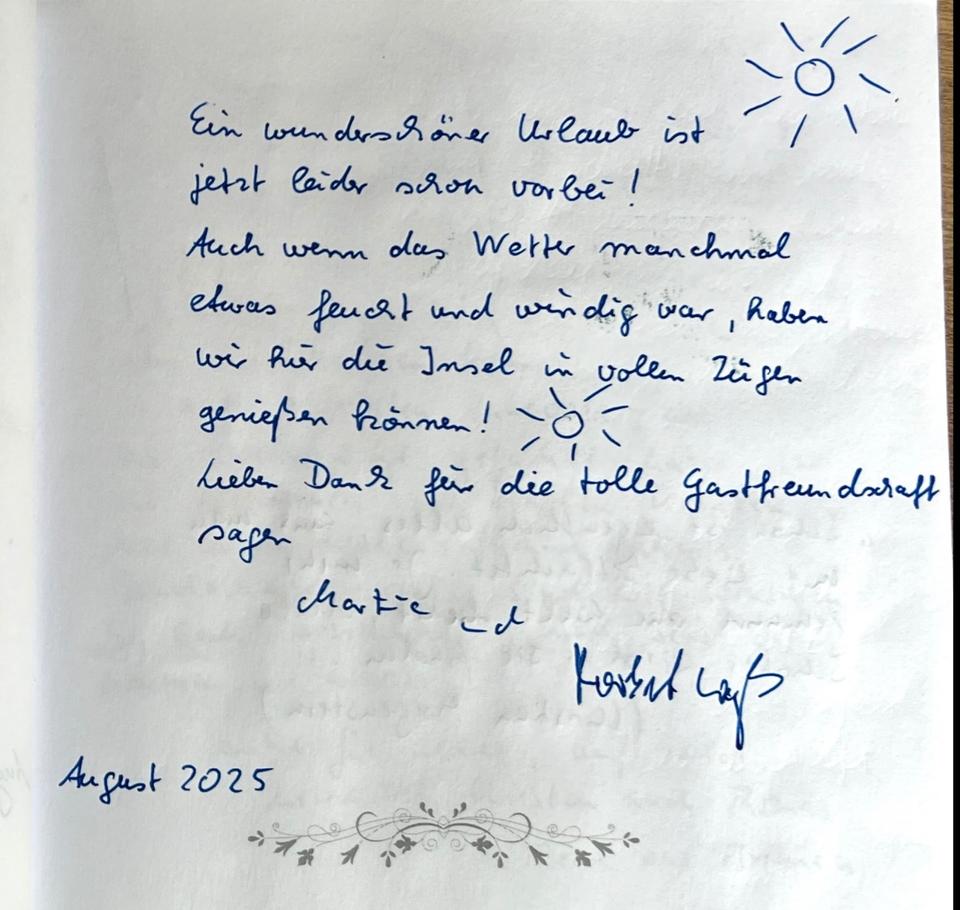 Ein wunderschöner Urlaub ist
jetzt leider schon vorbei!
Auch wenn das Wetter manchmal
etwas feucht und windig war, haben
wir hier die Insel in vollen Zügen
genießen können!
Lieben Dank für die tolle Gastfreundschaft
sagen
und
August 2025